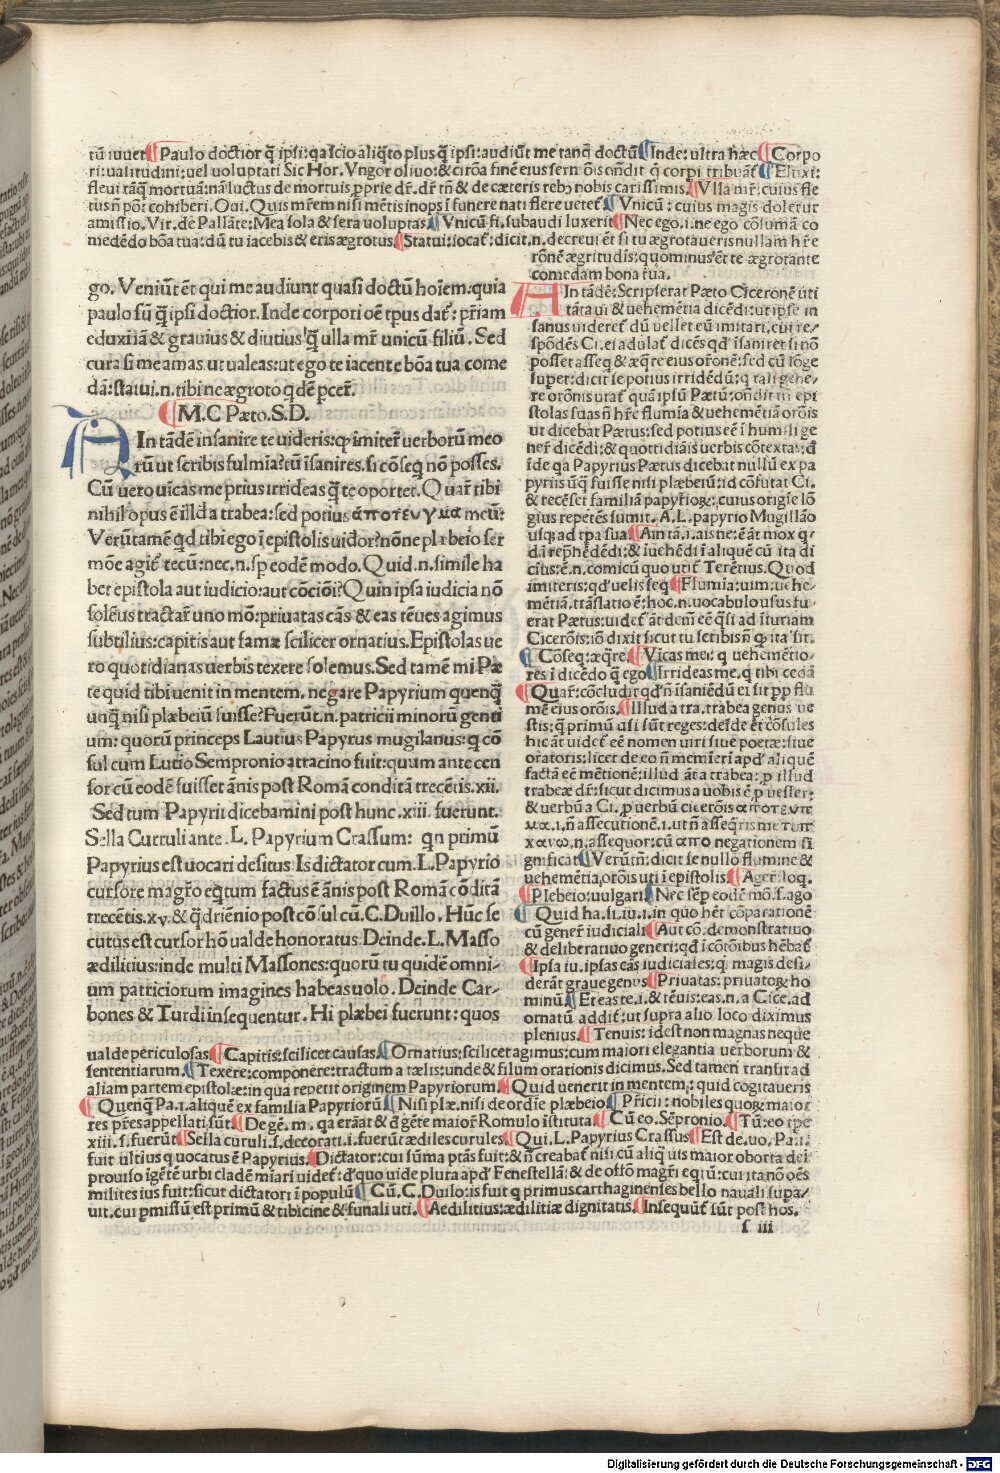 tū iuuet Paulo doctior q̄ ipsi: qa scio aliq̄to plus q̄ ipsi: audiūt me tanq̄ doctū Inde: ultra hæc Corpo
ri: ualitudini: uel voluptati Sic Hor. Vngor oliuo: & circa finē eius serm̄ ōis cōndit q̄ corpi tribuāt Eluxi:
fleui tāq̄ mortuā: nā luctus de mortuis pprie dr̄. dr̄ tn̄ & de cæteris reb⁊ nobis carissimis. Vlla mr̄: cuius fle
tus n̄ pōt cohiberi. Oui. Quis mr̄em nisi mētis inops ī funere nati flere uetet Vnicū: cuius magis doletur
amissio. Vir. de Pallāte: Mea sola & sera voluptas. Vnicū fi. subaudi luxerit Nec ego. i. ne ego cōlumā co
medēdo bōa tua: dū tu iacebis & eris ægrotus. Statui: iocat̄: dicit. n. decreui ēt si tu ægrotaueris nullam hr̄e
rōnē ægritudīs: quominus ēt te ægrotante
comedam bona tua.
go. Veniūt ēt qui me audiunt quasi doctū hoīem: quia
paulo sū q̄ ipsi doctior. Inde corpori oē tpus dat̄: pr̄iam
eduxi īā & grauius & diutius q̄ ulla mr̄ unicū filiū. Sed
cura si me amas ut ualeas: ut ego te iacente bōa tua come
dā: statui. n. tibi ne ægroto q̄dē pcer̄.
M. C Pæto. S. D.
AIn tādē insanire te uideris: qp imiter̄ verborū meo
rū ut scribis fulmīa? tū īsanires. si cōseq̄ nō posses.
Cū uero uīcas me prius irrideas q̄ te oportet. Quar̄ tibi
nihil opus ē illd a trabea: sed potius ἀποτευγμα meū:
Verūtamē qd̄ tibi ego ī epistolis uidor? nōne plæbeio ser
mōe agit̄ tecū: nec. n. sp eodē modo. Quid. n. simile ha
bet epistola aut iudicio: aut cōcioī? Quin ipsa iudicia nō
solēus tractar̄ uno mō: priuatas cās & eas tēues agimus
subtilius: capitis aut famæ scilicet ornatius. Epistolas ue
ro quotidianas uerbis texere solemus. Sed tamē mi Pæ
te quid tibi uenit in mentem. negare Papyrium quenq̄
unq̄ nisi plæbeiū fuisse? Fuerūt. n. patricii minorū genti
um: quorū princeps Lautius Papyrus mugilanus: q cō
sul cum Lutio Sempronio attracino fuit: quum ante cen
sor cū eodē fuisset ānis post Romā conditā trecētis. xii.
Sed tum Papyrii dicebamini post hunc. xiii. fuerunt.
Sella Curruli ante. L. Papyrium Crassum: qn primū
Papyrius est uocari desitus Is dictator cum. L. Papyrio
cursore magr̄o eq̄tum factus ē ānis post Romā cōditā
trecētis. xv & q̄driēnio post cōsul cū. C. Duillo. Hūc se
cutus est cursor hō ualde honoratus. Deinde. L. Masso
ædilitius: inde multi Massones: quorū tu quidē omni-
um patriciorum imagines habeas uolo. Deinde Car-
bones & Turdi insequentur. Hi plæbei fuerunt: quos
AIn tādē: Scripserat Pæto Ciceronē uti
tāta ui & uehemētia dicēdi: ut ipse in
sanus uideret̄ dū vellet eū imitari. cui re-
spōdēs Ci. ei adulat̄ dicēs qd̄ īsaniret si nō
posset asseq̄ & æq̄re eius or̄onē: sed cū lōge
super: dicit se potius irridēdū: q tali gene-
re orōnis utat̄ quā ipsū Pætū: ōndit tn̄ epi
stolas suas n̄ hr̄e flumīa & uehemētiā orōis
ut dicebat Pætus: sed potius eē ī humili ge
ner̄ dicēdi: & quottidiāīs uerbis cōtextas: d̄
īde qa Papyrius Pætus dicebat nullū ex pa
pyriis ūq̄ fuisse nisi plæberū: id cōfutat Ci.
& recēset familiā papyrio⁊: cuius origīe lō
gius repetēs sumit. A. L. papyrio Mugillāo
usq; ad tpa sua. Ain tā. i. ais ne: ē āt mox q̄
dā rep̄hēdēdi: & iuehēdī ī aliquē cū ita di
cīus: ē. n. comicū quo utit̄ Terētius. Quod
imiteris: qd̄ uelis seq̄ Flumīa: uim: uehe-
mētiā. trāslatio ē: hoc. n. uocabulo usus fu
erat Pætus: uidet̄ āt dēm eē q̄si ad īturiam
Cicerōis: iō dixit sicut tu scribis n̄ q̄ ita sit.
Cōseq: æq̄re. Vicas me: i q uehemētio-
res ī dicēdo q̄ ego Irrideas me. q tibi cedā
Quar̄: cōcludit qd̄ n̄ īsaniēdū ei sit pp flu
mē eius orōis. Illud a tra. trabea genus ue
stis: q̄ primū usi sūt reges: deīde ēt cōsules
hic āt uidet̄ eē nomen uiri siue poetæ: siue
oratoris: licet de eo n̄ meminerī apd̄ aliquē
factā eē mētionē: illud āt a trabea: p illud
trabeæ dr̄: sicut dicimus a uobis ē p uester:
& uerbū a Ci. p uerbū cicerōis αποτευγ
μα. i. n̄ assecutionē. i. ut n̄ asseq̄ris me τυπ
χανω. n. assequor: cū απο negationem si
gnificat Verūtn̄: dicit se nullo flumine &
uehemētia, orōis uti ī epistolis. Ager̄: loq̄.
Plebeio: uulgari. Nec sēp eodē mō. s. ago
Quid ha. si. iu. i. in quo hēt cōparationē
cū gener̄ iudiciali Aut cō. demonstratiuo
& deliberatiuo generi: qd̄ ī cōtōibus hēbat̄
Ipsa iu. ipsas cās iudiciales: q̄ magis desi-
derāt graue genus Priuatas: priuato⁊ ho
minū Et eas te. i. & tēuis: eas. n. a Cice. ad
ornatū addit̄: ut supra alio loco diximus
plenius. Tenuis: id est non magnas neque
ualde periculosas. Capitis: scilicet causas. Ornatius: scilicet agimus: cum maiori elegantia uerborum &
sententiarum. Texere: componere: tractum a tælis: unde & filum orationis dicimus. Sed tamen transit ad
aliam partem epistolæ: in qua repetit originem Papyriorum. Quid uenerit in mentem: quid cogitaueris
Quenq̄ Pa. i. aliquē ex familia Papyriorū Nisi plæ. nisi de ordīe plæbeio Pr̄icii: nobiles quo⁊ maior
res pr̄es appellati sūt. De gē. m. qa erāt & d̄ gēte maior̄ Romulo īstituta. Cū eo. Sēpronio. Tū: eo tpe
xiii. s. fuerūt Sella curuli. s. decorati. i. fuerūt ædiles curules Qui. L. Papyrius Crassus Est de. uo. Pa. i.
fuit ultius q uocatus ē Papyrius. Dictator: cui sūma ptās fuit: & n̄ creabat̄ nisi cū aliq̄ uis maior oborta dei
prouiso īgētē urbi cladē miari uidet̄: d̄ quo uide plura apd̄ Fenestellā: & de offō magr̄i eq̄tū: cui ita nō oēs
milites ius fuit: sicut dictatori ī populū Cū. C. Duilo: is fuit q primus carthaginenses bello nauali supa-
uit. cui pmissū est primū & tibicine & funali uti. Aedilitius: ædilitiæ dignitatis. Insequūt̄ sūt post hos.
s iii
Digitalisierung gefördert durch die Deutsche Forschungsgemeinschaft - DFG